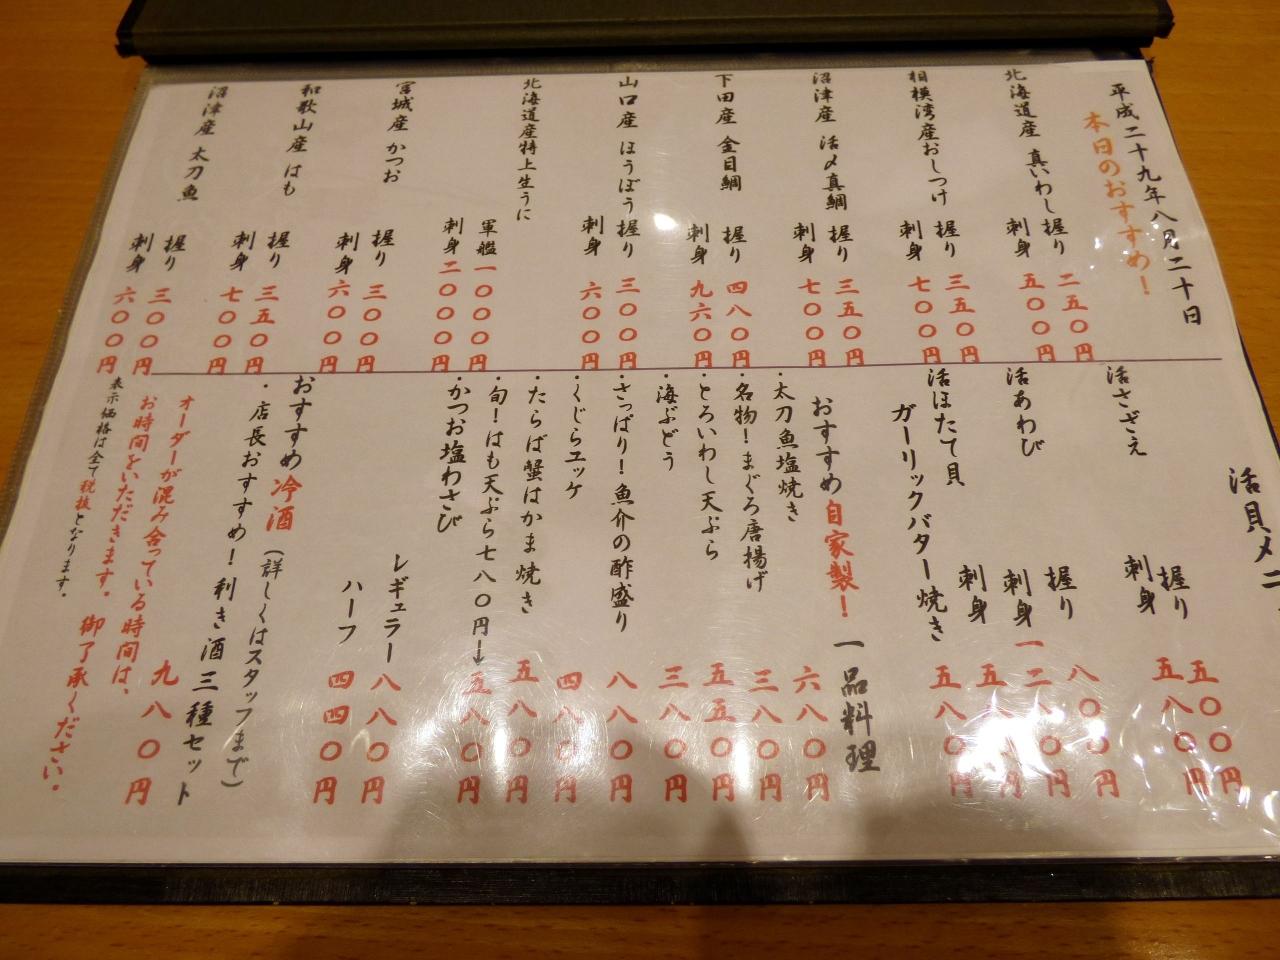 平成二十九年八月二十日
本日のおすすめ！
北海道産 真いわし
握り 二五〇円
刺身 五〇〇円
相模湾産おしつけ
握り 三五〇円
刺身 七〇〇円
沼津産 活〆真鯛
握り 三五〇円
刺身 七〇〇円
下田産 金目鯛
握り 四八〇円
刺身 九六〇円
山口産 ほうぼう
握り 三〇〇円
刺身 六〇〇円
北海道産特上生うに
軍艦 一〇〇〇円
刺身 二〇〇〇円
宮城産 かつお
握り 三〇〇円
刺身 六〇〇円
和歌山産 はも
握り 三五〇円
刺身 七〇〇円
沼津産 太刀魚
握り 三〇〇円
刺身 六〇〇円
活貝メニ
活さざえ
握り 五〇〇円
刺身 五八〇円
活あわび
握り 八〇〇円
刺身 一二八〇円
活ほたて貝
刺身 五八〇円
ガーリックバター焼き 五八〇円
おすすめ自家製！一品料理
・太刀魚塩焼き 六八〇円
・名物！まぐろ唐揚げ 三八〇円
・とろいわし天ぷら 五五〇円
・海ぶどう 三八〇円
・さっぱり！魚介の酢盛り 八八〇円
・くじらユッケ 四八〇円
・たらば蟹はかま焼き 五八〇円
・旬！はも天ぷら七八〇円→五八〇円
・かつお塩わさび
レギュラー 八八〇円
ハーフ 四四〇円
おすすめ冷酒（詳しくはスタッフまで）
・店長おすすめ！利き酒三種セット
九八〇円
オーダーが混み合っている時間は、
お時間をいただきます。御了承ください。
表示価格は全て税抜となります。